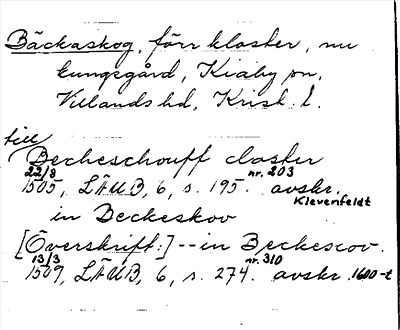 Bäckaskog, förr kloster, nu
kungsgård, Kiaby sn,
Villands hd, Krist. l.
till
Becheschouff closter
22/8 nr. 203
1505, LÄUB, 6, s. 195. avskr.
Klevenfeldt
in Beckeskov
[Överskrift:] -- in Beckescov.
13/3 nr. 310
1509, LÄUB, 6, s. 274. avskr. 1600-t